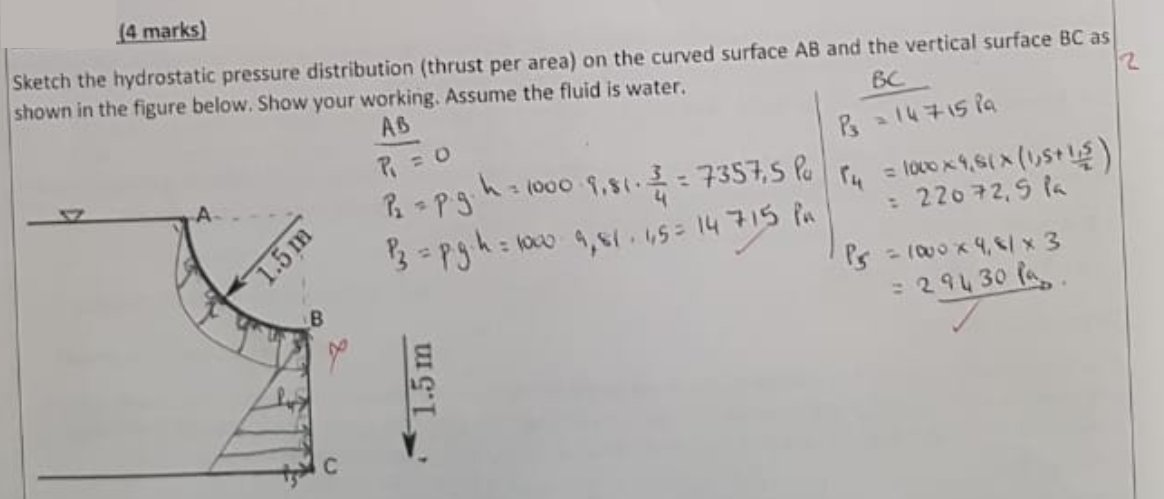 (4 marks)
Sketch the hydrostatic pressure distribution (thrust per area) on the curved surface AB and the vertical surface BC as
shown in the figure below. Show your working. Assume the fluid is water.
2
AB
P₁ = 0
P₂ = ρ.g.h = 1000 . 9,81 . 3/4 = 7357,5 Pa
P₃ = ρ.g.h = 1000 . 9,81 . 1,5 = 14 715 Pa
BC
P₃ = 14715 Pa
P₄ = 1000 × 9,81 × (1,5 + 1,5/2)
= 22072,5 Pa
P₅ = 1000 × 9,81 × 3
= 29430 Pa
A
1.5 m
B
1.5 m
P₄
P₅
C